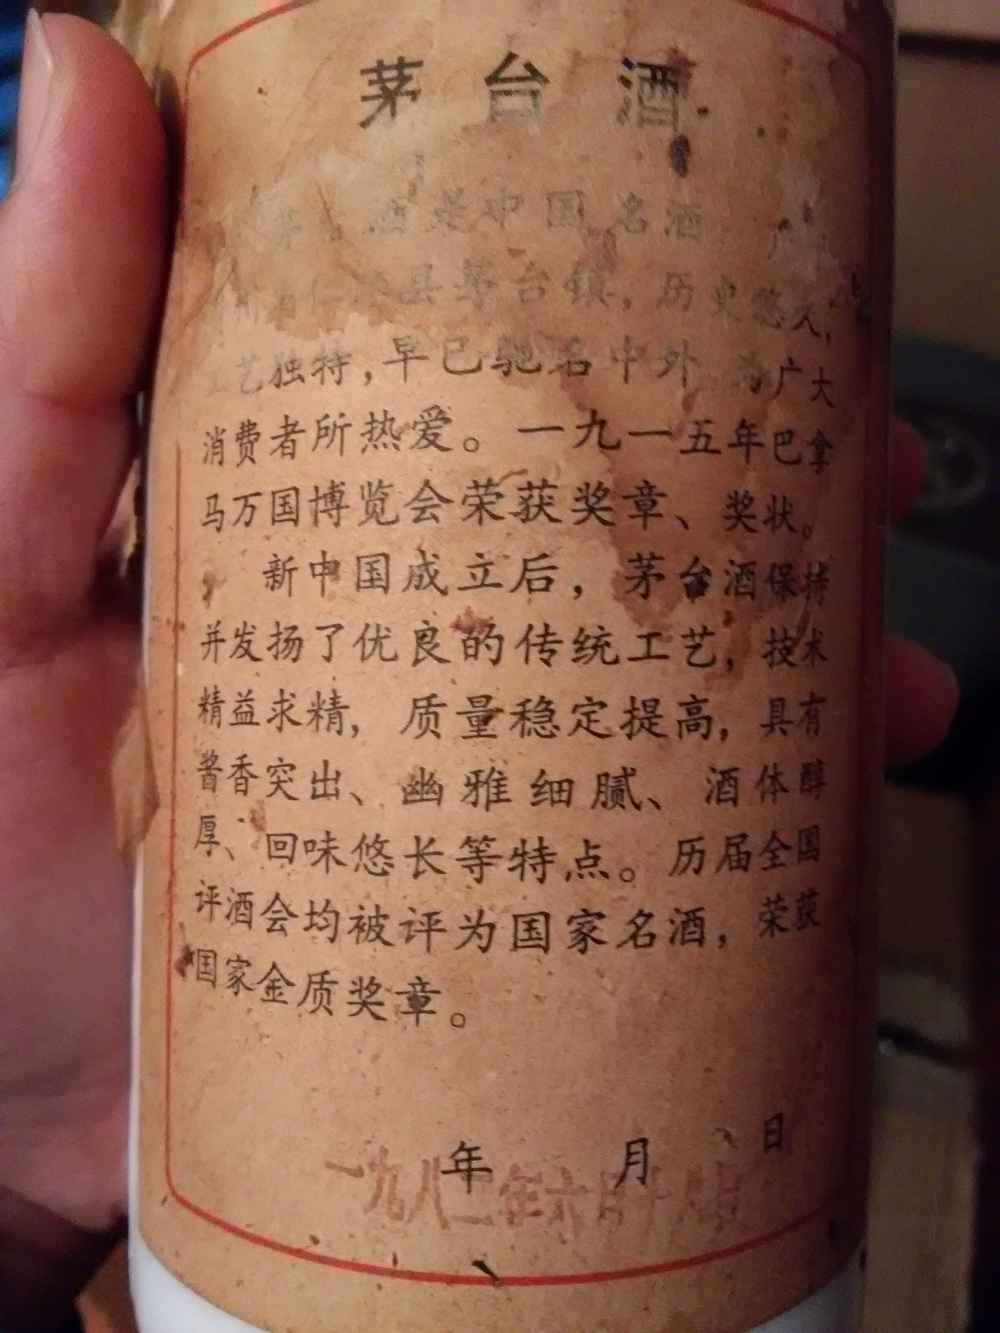 茅台酒
酒是中国名酒
县茅台镇，历史悠久，
工艺独特，早已驰名中外 为广大
消费者所热爱。一九一五年巴拿
马万国博览会荣获奖章、奖状。
新中国成立后，茅台酒保持
并发扬了优良的传统工艺，技术
精益求精，质量稳定提高，具有
酱香突出、幽雅细腻、酒体醇
厚、回味悠长等特点。历届全国
评酒会均被评为国家名酒，荣获
国家金质奖章。
年 月 日
一九八二年六月十八日